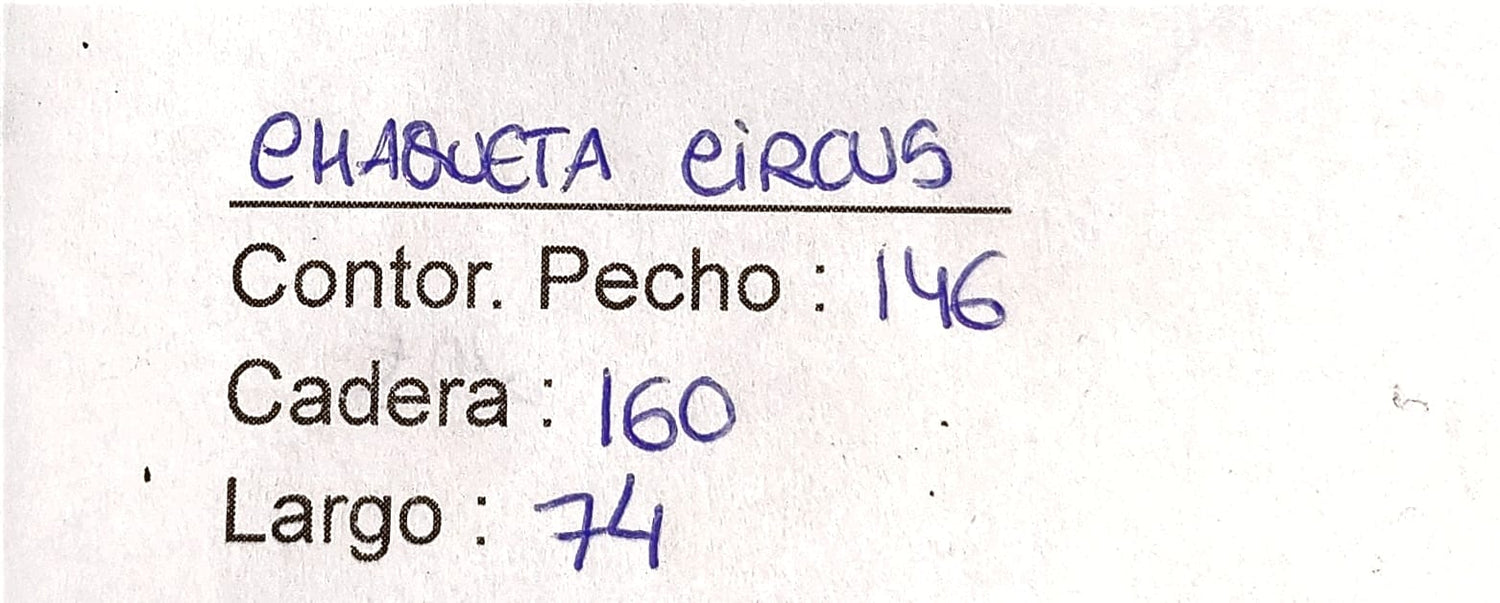 CHAQUETA CiRCUS
Contor. Pecho : 146
Cadera : 160
Largo : 74